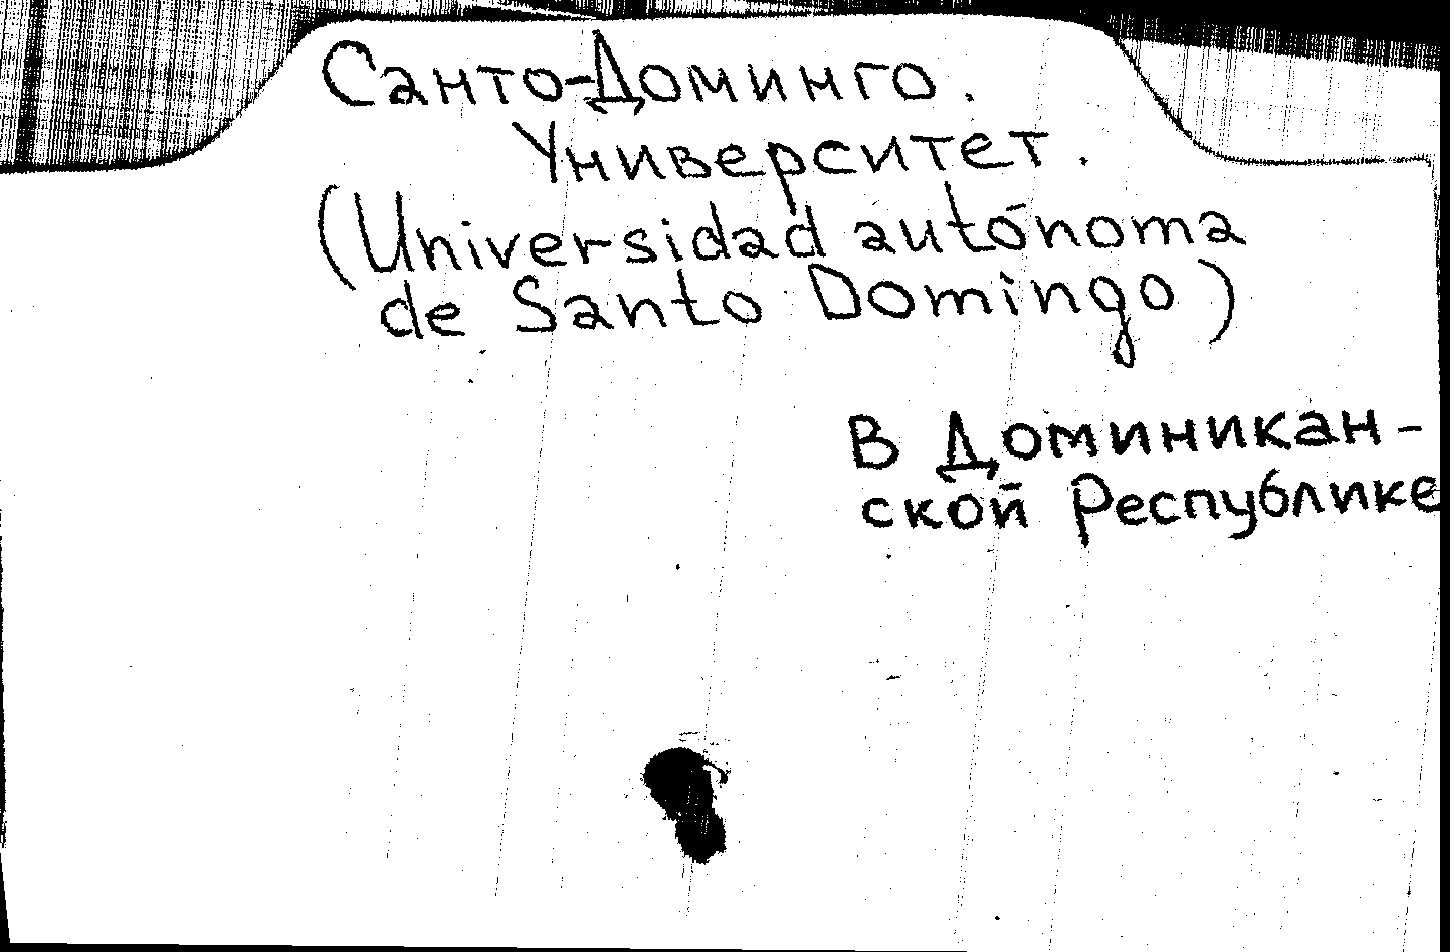 Санто-Доминго.
Университет.
(Universidad autónoma
de Santo Domingo)
В Доминикан-
ской Республике